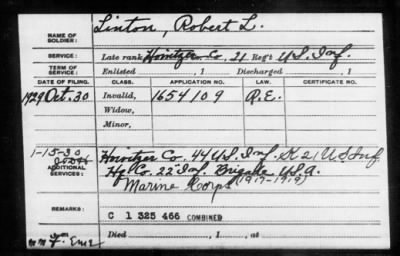 NAME OF SOLDIER: Linton, Robert L.
SERVICE: Late rank Howitzer Co., 21 Reg't US. Inf.
TERM OF SERVICE: Enlisted , 1 Discharged , 1
DATE OF FILING. CLASS. APPLICATION NO. LAW. CERTIFICATE NO.
1929 Oct. 30 Invalid, 1654109 P.E.
Widow,
Minor,
1-15-30
ADDITIONAL SERVICES: Howitzer Co. 44 U.S. Inf. K 21 US Inf
Hq Co. 22 Inf. Brigade U.S.A.
Marine Corps (1917-1919)
REMARKS: C 1 325 466 COMBINED
Died , 1 , at